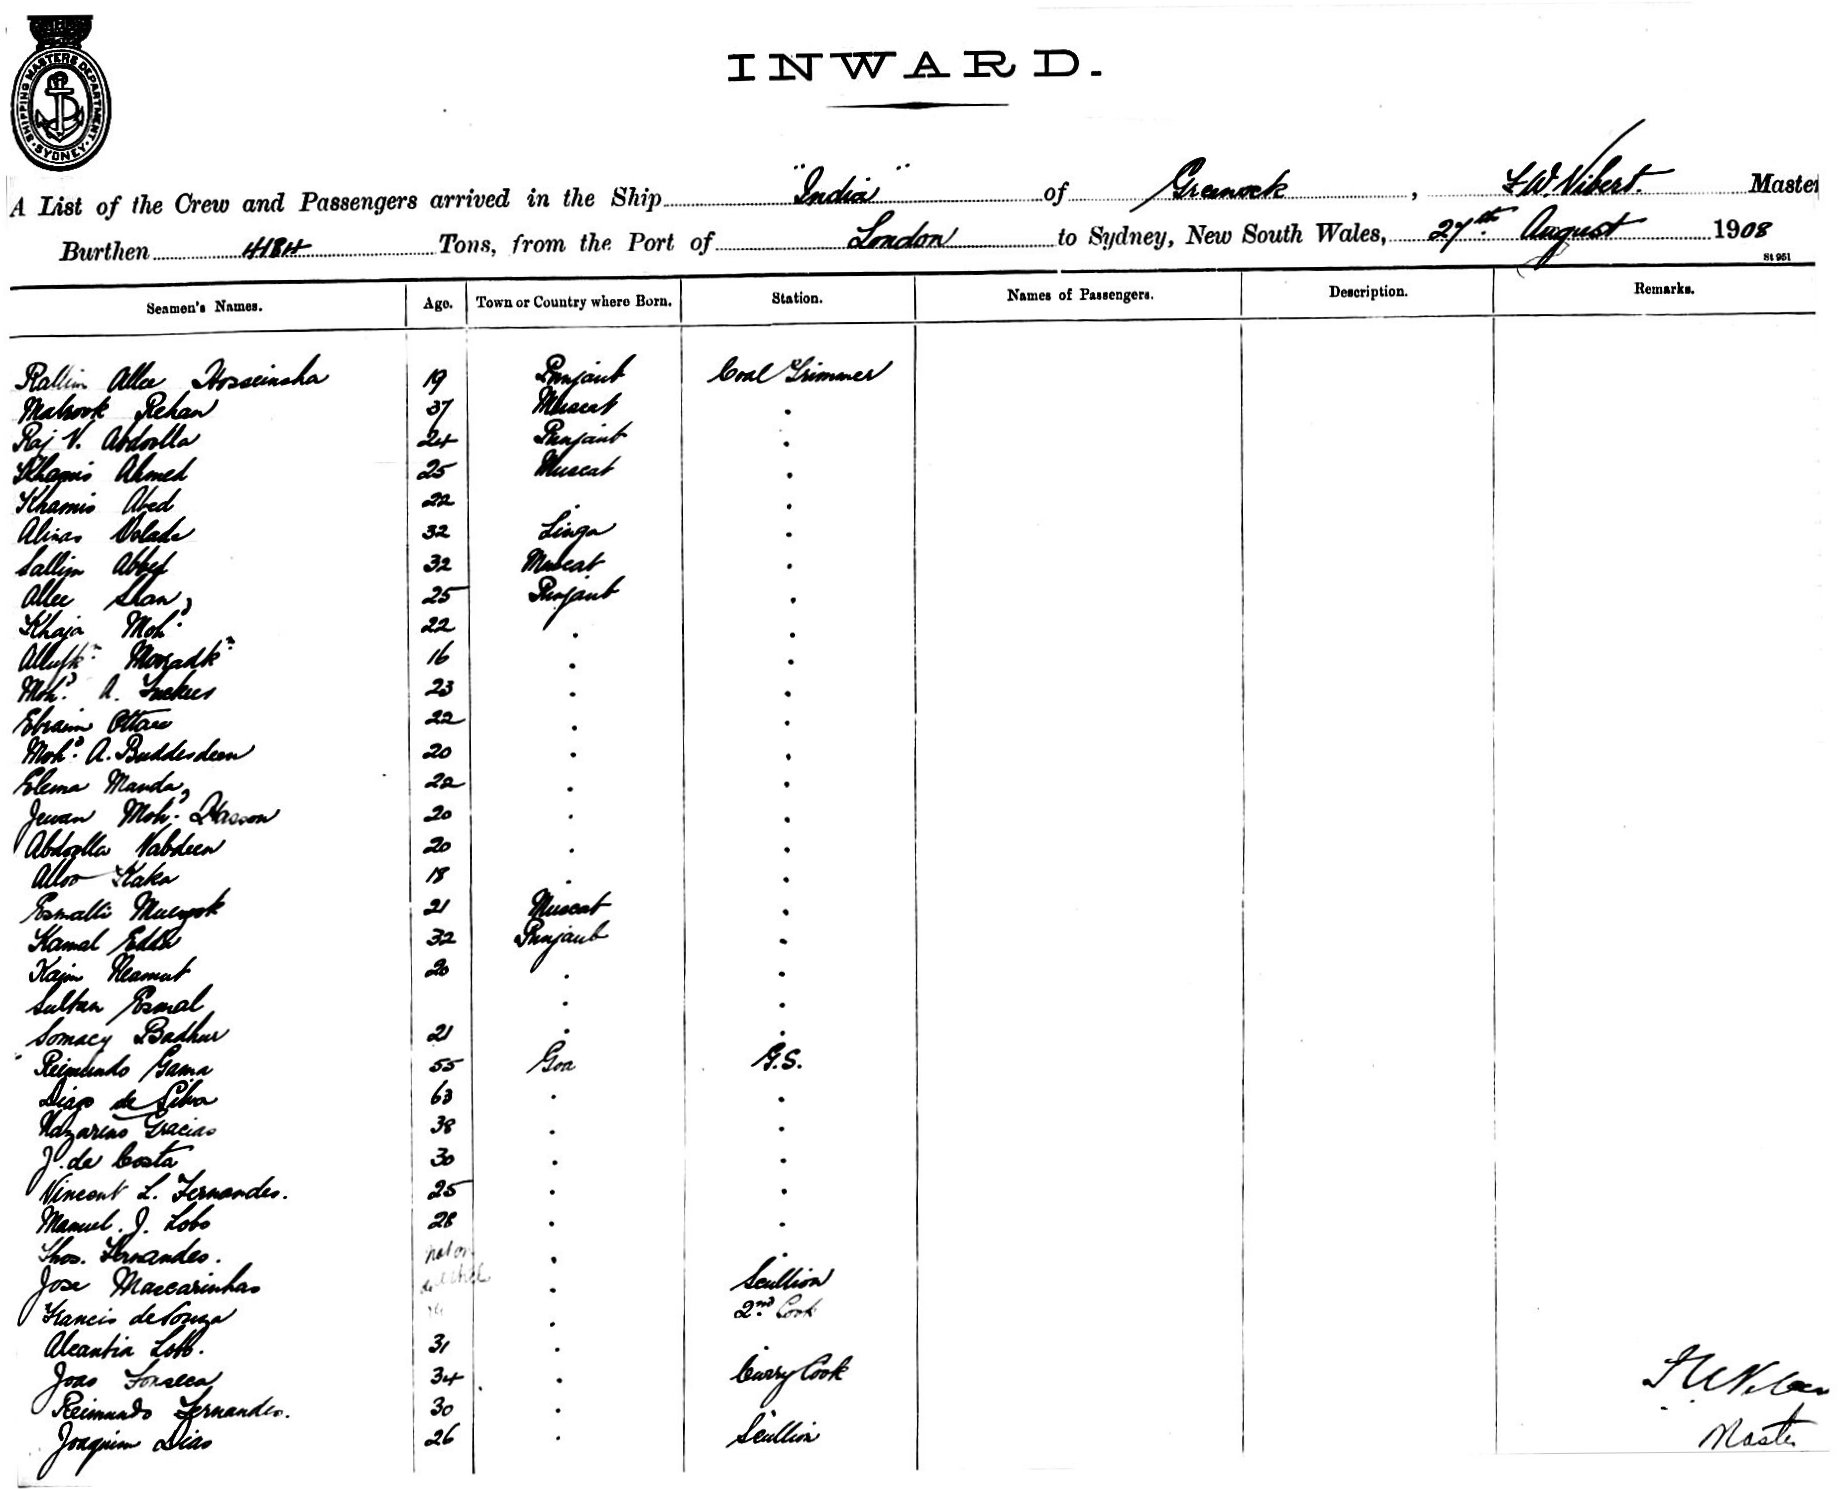 SHIPPING MASTERS DEPARTMENT · SYDNEY ·
INWARD.
A List of the Crew and Passengers arrived in the Ship "India" of Greenock, F W. Vibert. Master
Burthen 4184 Tons, from the Port of London to Sydney, New South Wales, 27th August 1908
St 951
Seamen's Names. Age. Town or Country where Born. Station. Names of Passengers. Description. Remarks.
Rallim Allee Hosseinsha 19 Punjaub Coal Trimmer
Mabrook Rehan 37 Muscat .
Raj V. Abdoolla 24 Punjaub .
Khamis Ahmed 25 Muscat .
Khamis Abed 22 . .
Alinas Volada 32 Linga .
Sallim Abbed 32 Muscat .
Allee Shan 25 Punjaub .
Khaja Mohd. 22 . .
16 . .
Mohd. A. 23 . .
Ebraim Ottaee 22 . .
Mohd. A. Buddesdeen 20 . .
Elema Manda 22 . .
Jewan Mohd. Hasson 20 . .
Abdoolla Nabdeen 20 . .
Alloo Kaka 18 . .
Esmalli 21 Muscat .
Kamal Edla 32 Punjaub .
Kajim Neamut 20 . .
Sultan Esmal . .
Somacy Badhur 21 . .
Reimundo Gama 55 Goa G.S.
Diago de Silva 63 . .
Nazareno Gracias 38 . .
J. de Costa 30 . .
Vincent L. Fernandes. 25 . .
Manuel. J. Lobo 28 . .
Thos. Fernandes. not on . .
Jose Mascarinhas . Scullion
Francis de Souza . 2nd. Cook
Alcantia Lobo. 31 . .
Joao Fonseca 34 . Curry Cook
Reimundo Fernandes. 30 .
Joaquim Dias 26 . Scullion
Master